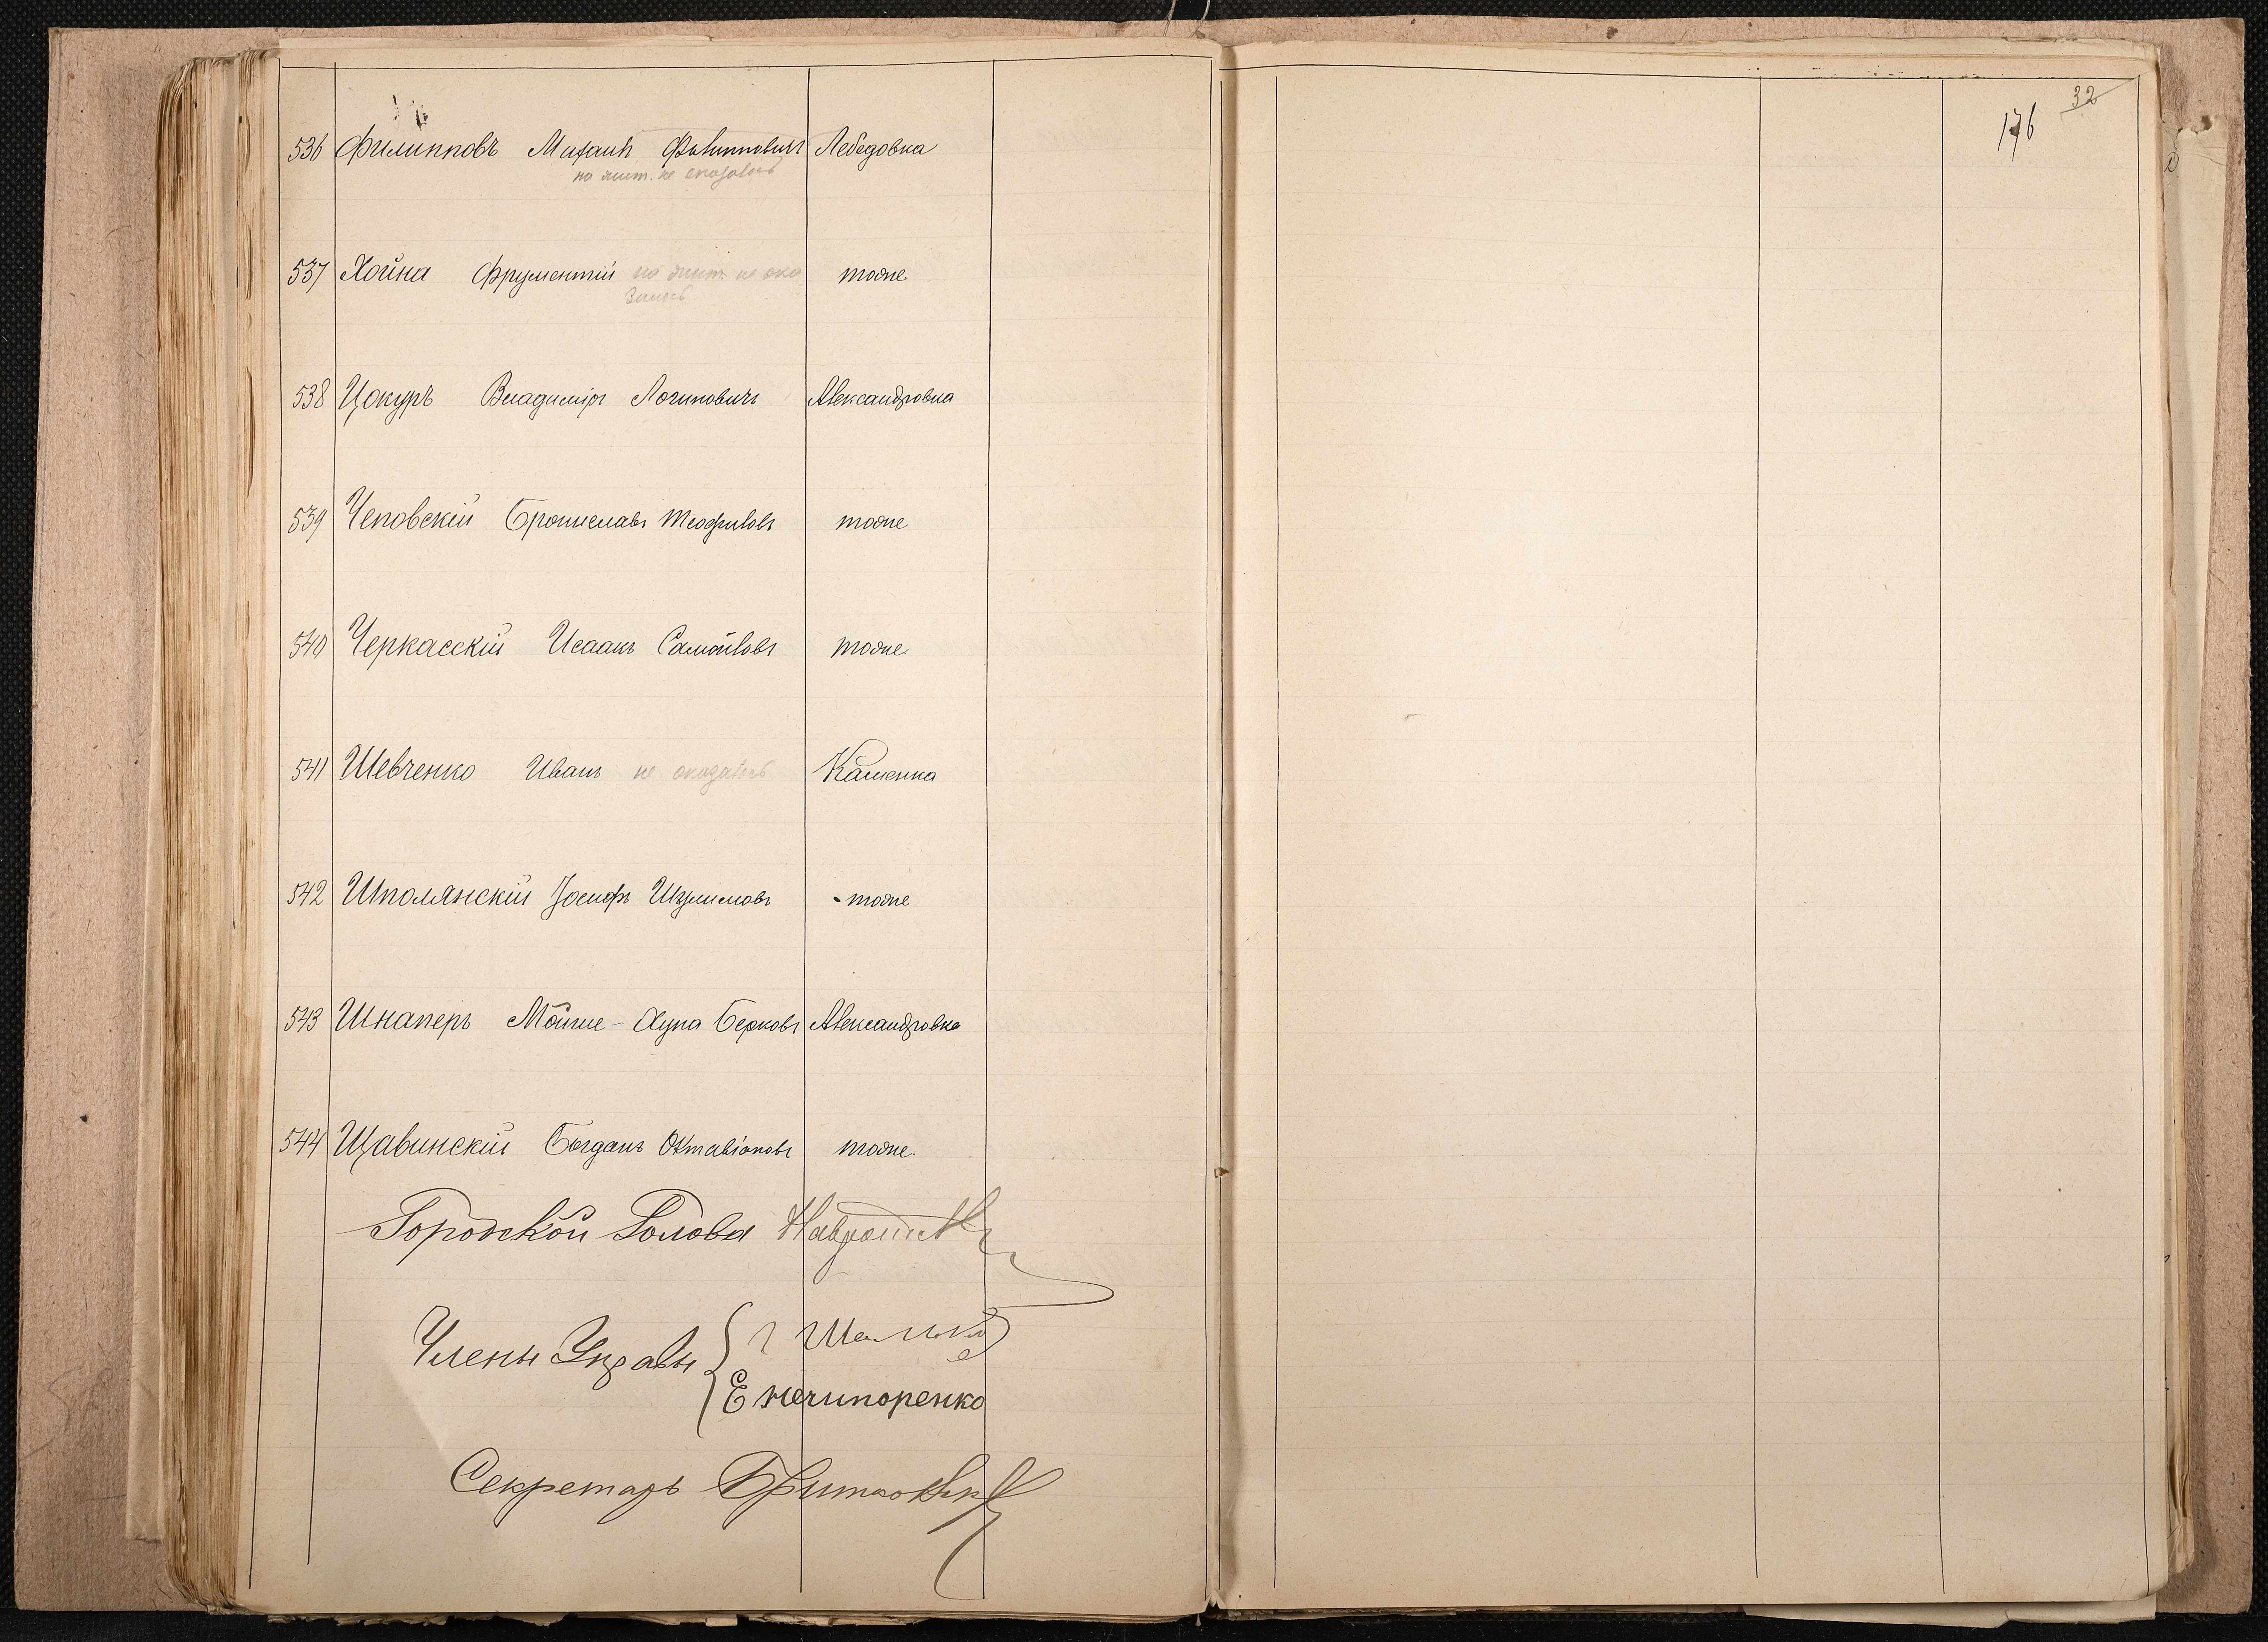 536 Филипповъ Михаилъ Филипповичъ Лебедовка
не оказалось
537 Хойна Фрументій не ока тоже
залось
538 Цокуръ Владиміръ Логиновичъ Александровка
539 Чеповскій Брониславъ Теофиловъ тоже
540 Черкасскій Исаакъ Самойловъ тоже
541 Шевченко Иванъ не оказалось Каменка
542 Шполянскій Іосифъ Шулимовъ - тоже
543 Шнаперъ Мойше-Хуна Берковъ Александровка
544 Щавинскій Богданъ Октавіановъ тоже.
Городской Голова
Члены Управы
Е Нечипоренко
Секретарь
32
176